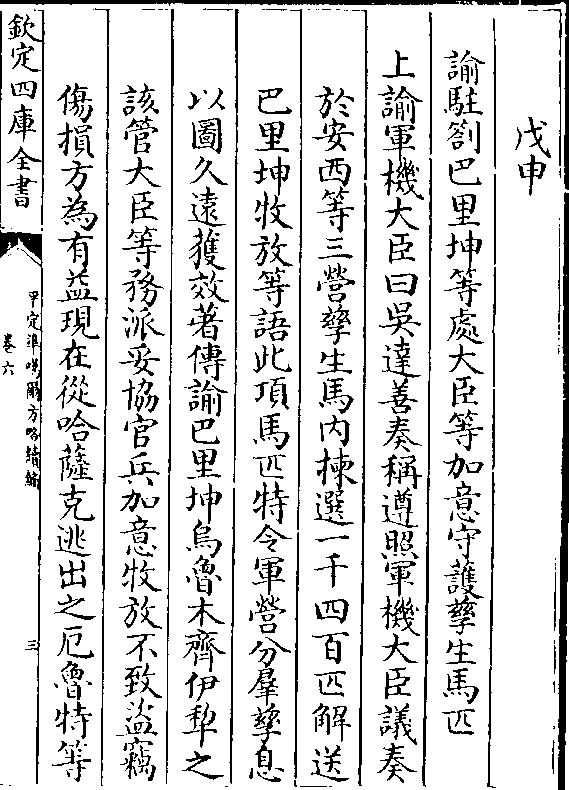 戊申
諭駐劄巴里坤等處大臣等加意守護孳生馬匹
上諭軍機大臣曰吳達善奏稱遵照軍機大臣議奏
於安西等三營孳生馬內揀選一千四百匹解送
巴里坤牧放等語此項馬匹特令軍營分羣孳息
以圖久遠獲效著傳諭巴里坤烏魯木齊伊犂之
該管大臣等務派妥協官兵加意牧放不致盜竊
傷損方為有益現在從哈薩克逃出之厄魯特等
欽定四庫全書
平定準噶爾方略續編
卷六
三